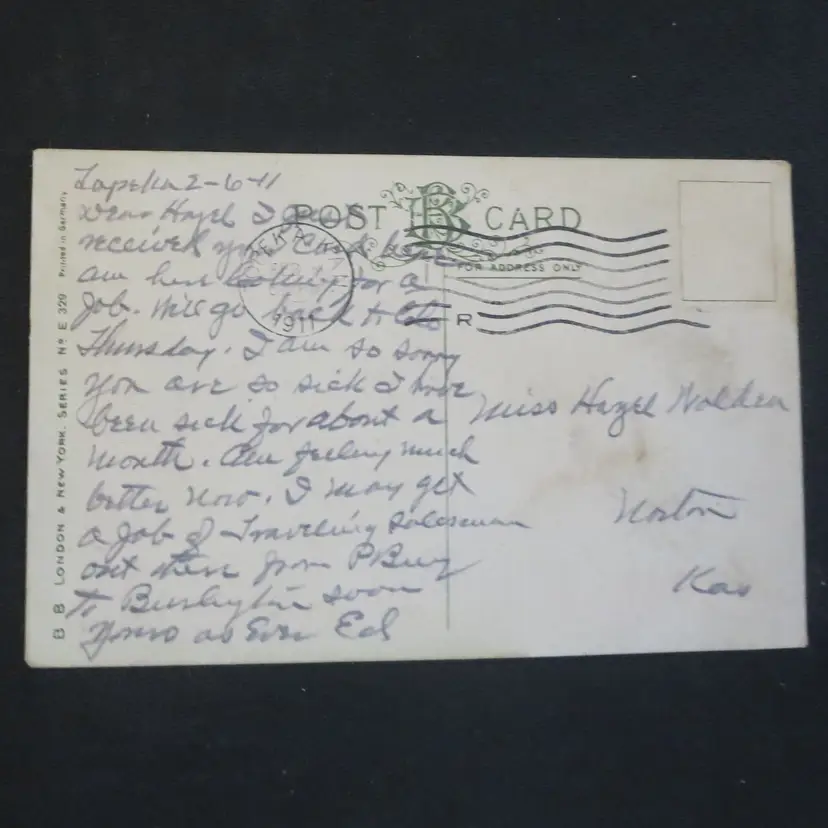 Topeka 2-6-11
Dear Hazel I
received your Card here
am here looking for a
job. Will go back to
Thursday. I am so sorry
you are so sick I have
been sick for about a
month. Am feeling much
better now. I may get
a job of Traveling Salesman
out there from P Burg
to Burlington soon
yours as Ever Ed
POST B CARD
FOR ADDRESS ONLY
1911
R
Miss Hazel Nolden
Norton
Kas
B B LONDON & NEW YORK. SERIES Nº E 329 Printed in Germany